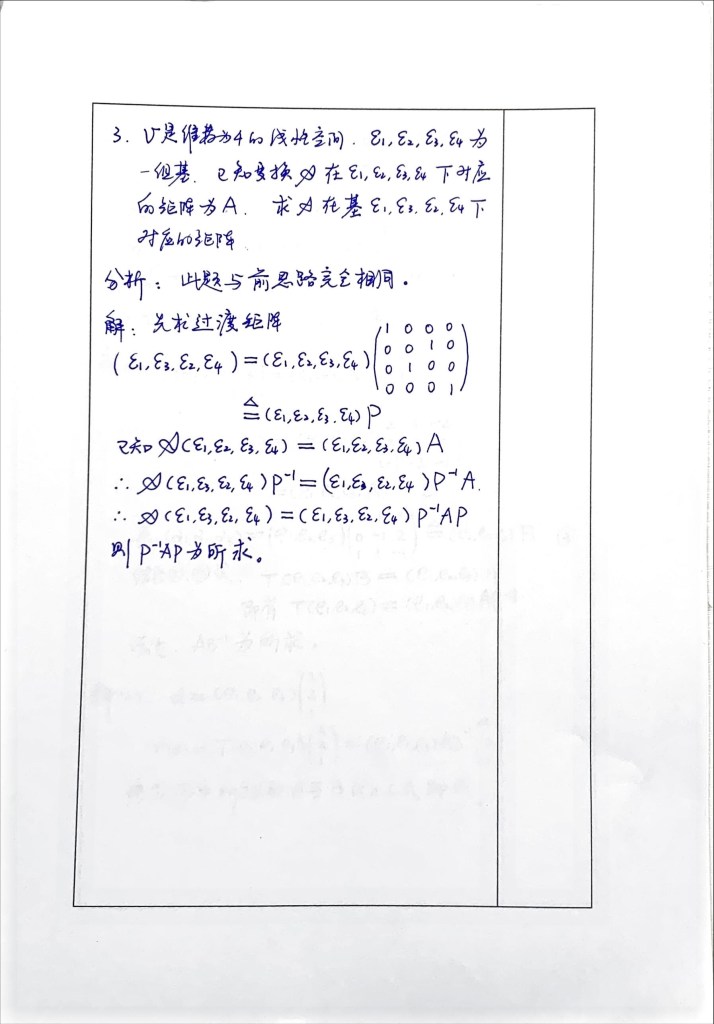 3. V是维数为4的线性空间. ε1,ε2,ε3,ε4为
一组基. 已知变换𝒜在ε1,ε2,ε3,ε4下对应
的矩阵为A. 求𝒜在基ε1,ε3,ε2,ε4下
对应的矩阵
分析：此题与前思路完全相同.
解：先求过渡矩阵
(ε1,ε3,ε2,ε4)=(ε1,ε2,ε3,ε4)(1 0 0 0
0 0 1 0
0 1 0 0
0 0 0 1)
≜(ε1,ε2,ε3,ε4)P
已知𝒜(ε1,ε2,ε3,ε4)=(ε1,ε2,ε3,ε4)A
∴𝒜(ε1,ε3,ε2,ε4)P⁻¹=(ε1,ε3,ε2,ε4)P⁻¹A.
∴𝒜(ε1,ε3,ε2,ε4)=(ε1,ε3,ε2,ε4)P⁻¹AP
则P⁻¹AP为所求。